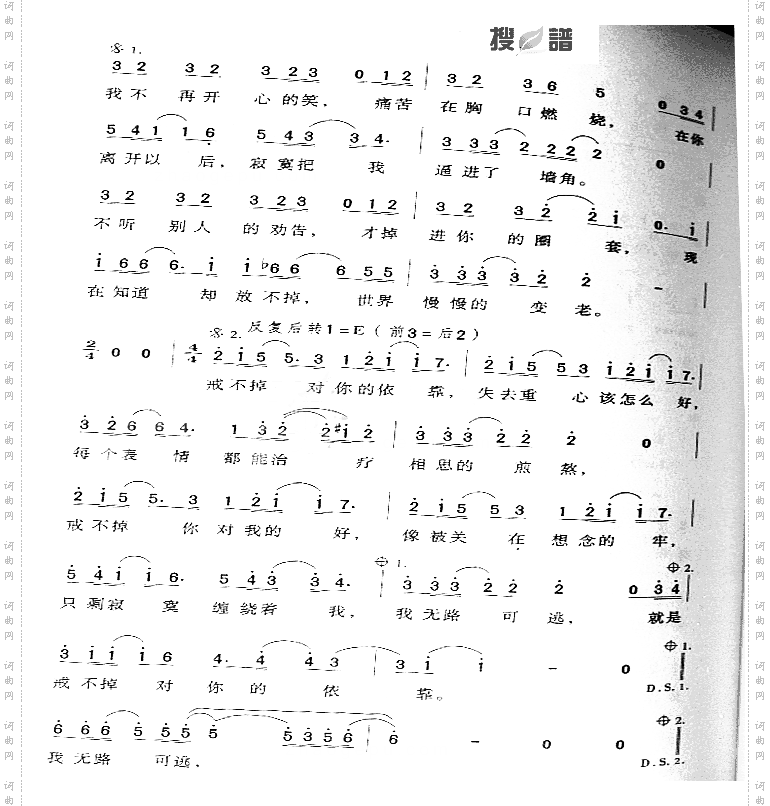 搜 譜
1.
3 2 3 2 3 2 3 0 1 2 | 3 2 3 6 5 0 3 4 |
我不 再开 心的笑， 痛苦 在胸 口燃 烧， 在你
5 4 1 1 6 5 4 3 3 4· | 3 3 3 2 2 2 2 2 0 |
离开以 后， 寂寞把 我 逼进了 墙角。
3 2 3 2 3 2 3 0 1 2 | 3 2 3 2 2 1 0· 1 |
不听 别人 的劝告， 才掉 进你 的圈 套， 现
1 6 6 6· 1 1 ♭6 6 6 5 5 | 3 3 3 3 2 2 - |
在知道 却放不掉， 世界 慢慢的 变老。
2. 反复后转1=E（前3=后2）
2/4 0 0 | 4/4 2 1 5 5· 3 1 2 1 1 7· | 2 1 5 5 3 1 2 1 1 7· |
戒不掉 对你的依 靠， 失去重 心该怎么 好，
3 2 6 6 4· 1 3 2 2 #1 2 | 3 3 3 2 2 2 0 |
每个表 情 都能治 疗 相思的 煎熬，
2 1 5 5· 3 1 2 1 1 7· | 2 1 5 5 3 1 2 1 1 7· |
戒不掉 你对我的 好， 像被关 在想念的 牢，
1. 2.
5 4 1 1 6· 5 4 3 3 4· | 3 3 3 2 2 2 0 3 4 |
只剩寂 寞 缠绕着 我， 我无路 可逃， 就是
1.
3 1 1 1 6 4· 4 4 3 | 3 1 1 - 0
戒不掉 对 你的 依 靠。 D.S.1.
2.
6 6 6 5 5 5 5 5 3 5 6 | 6 - 0 0
我无路 可逃， D.S.2.
词曲网